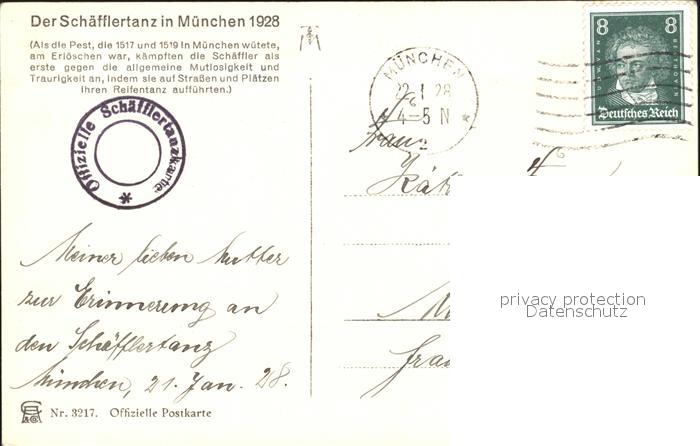 Der Schäfflertanz in München 1928
(Als die Pest, die 1517 und 1519 in München wütete,
am Erlöschen war, kämpften die Schäffler als
erste gegen die allgemeine Mutlosigkeit und
Traurigkeit an, indem sie auf Straßen und Plätzen
Ihren Reifentanz aufführten.)
Offizielle Schäfflertanzkarte
MÜNCHEN
22.1.28
4-5 N
2
8 8
LUDWIG VAN BEETHOVEN
Deutsches Reich
Frau
Meiner lieben Mutter
zur Erinnerung an
den Schäfflertanz
München, 21. Jan. 28.
privacy protection
Datenschutz
Nr. 3217. Offizielle Postkarte